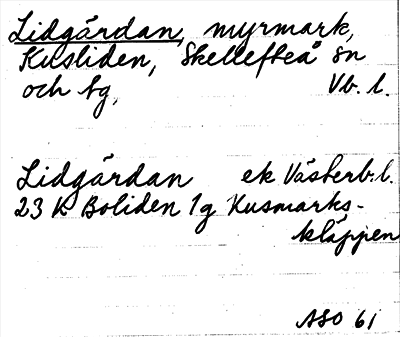 Lidgärdan, myrmark,
Kusliden, Skellefteå sn
och tg, Vb. l.
Lidgärdan ek Västerb.l.
23 K Boliden 1g Kusmarks-
kläppen
ASO 61